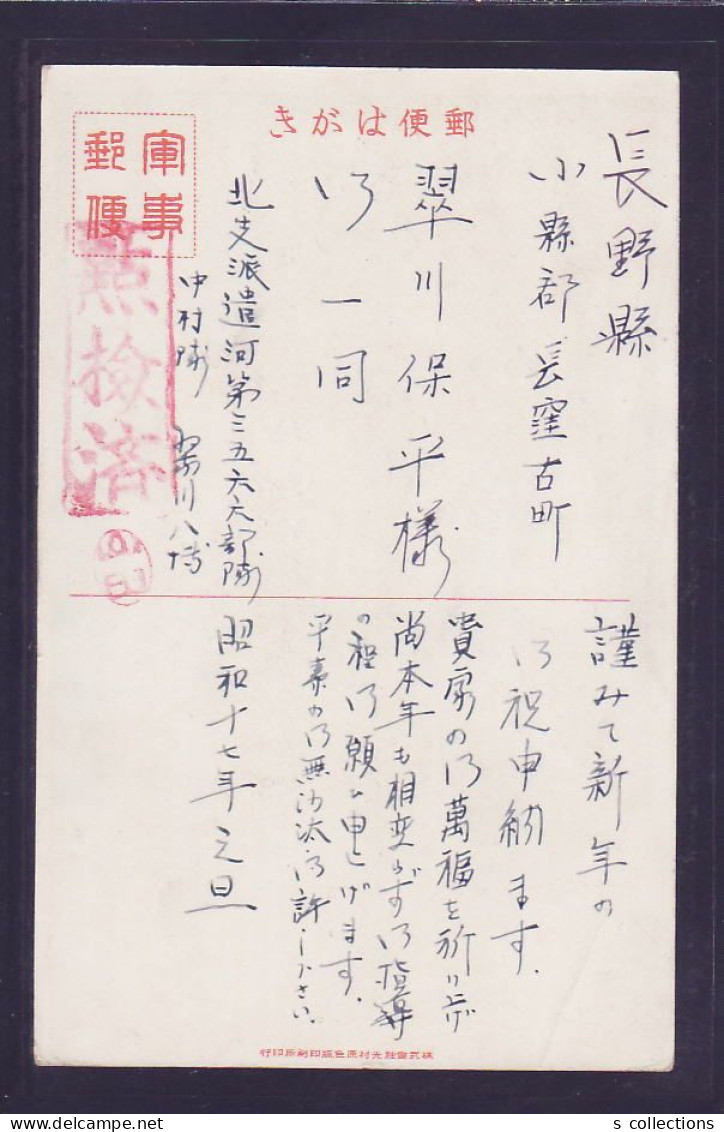 郵便はがき
軍事郵便
點檢済
長野縣
小縣郡長窪古町
翠川保平様
仝一同
北支派遣河第三五六六部隊
中村隊 翠川八
謹みて新年の
御祝申納ます.
貴家の御萬福を祈り上げ
尚本年も相変らず御指導
の程御願ひ申上げます.
平素の御無沙汰御許し下さい.
昭和十七年元旦
株式會社光村原色版印刷所印行
s collections